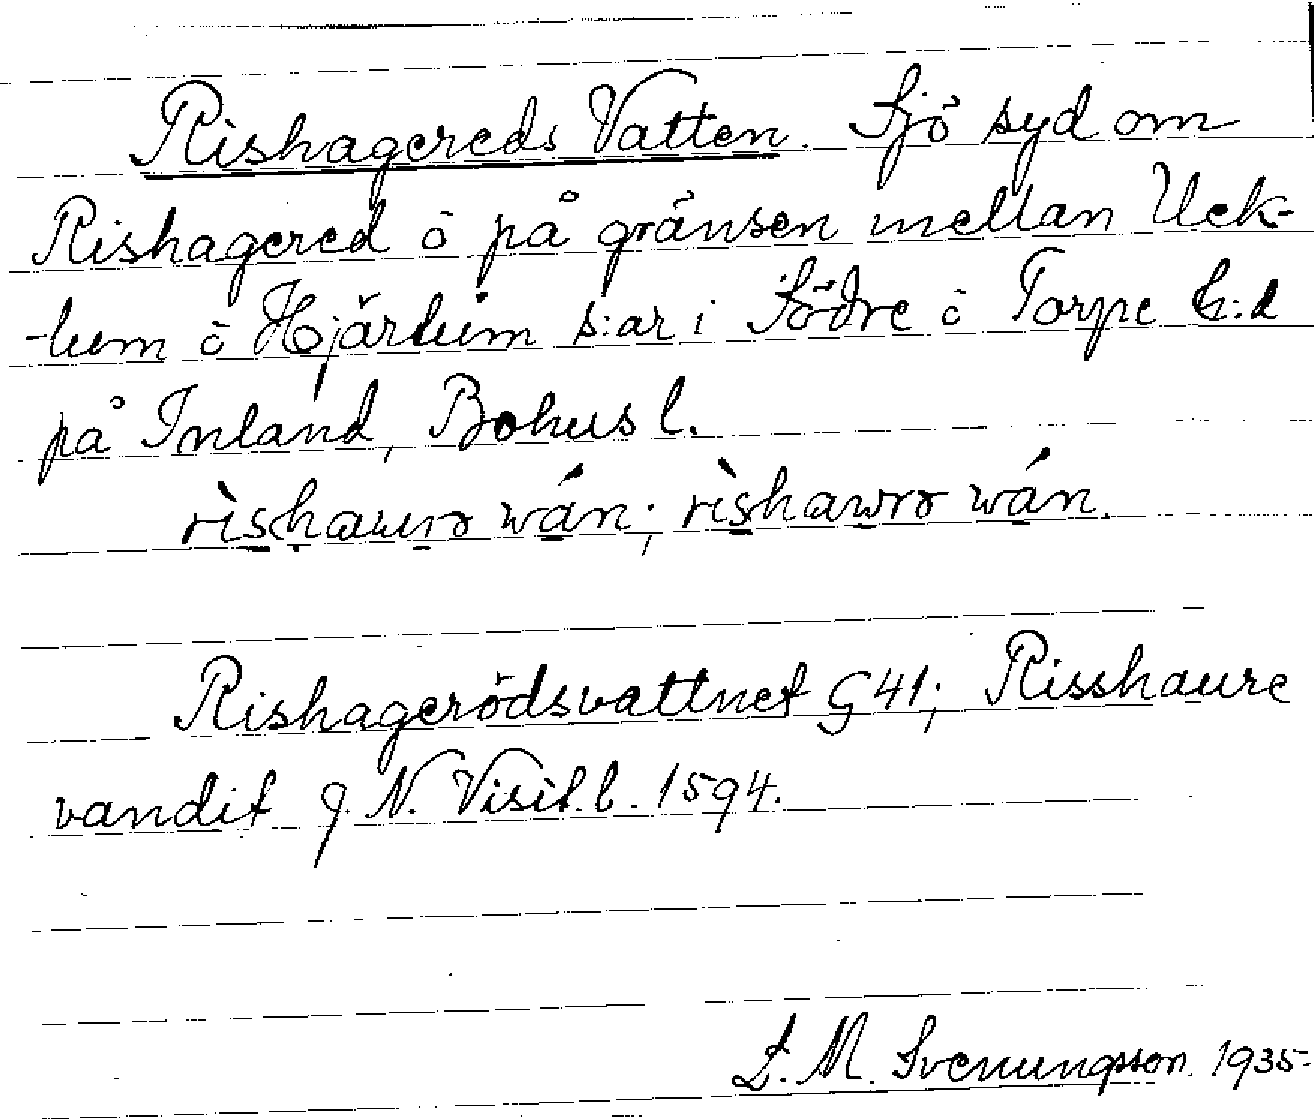 Rishagereds Vatten. Sjö syd om
Rishagered ō på gränsen mellan Uck-
-lum ō Hjärtum s:ar i Södre ō Torpe h:d
på Inland, Bohus l.
rìshawrɤ wán; rìshawrɤ wán.
Rishagerödsvattnet G41; Risshaure
vandit J. N. Visit. b. 1594.
L. M. Svenungsson 1935.